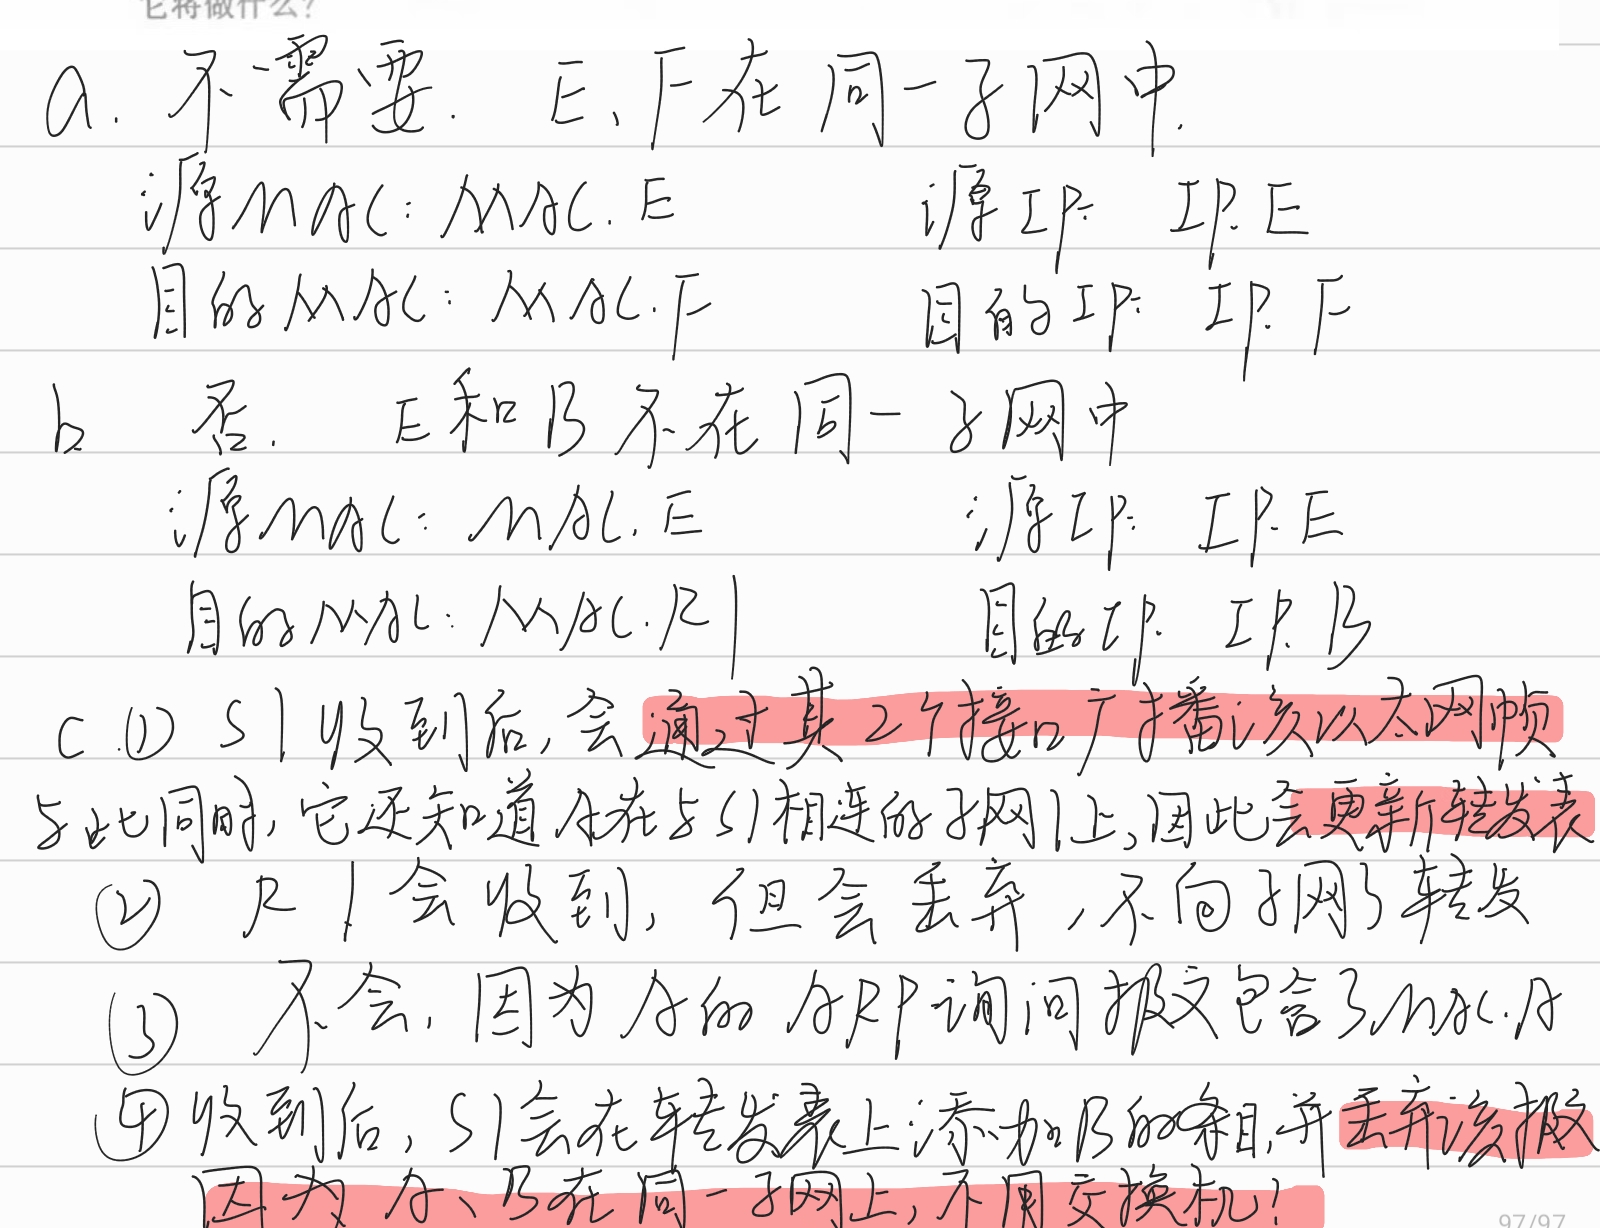 它将做什么?
a. 不需要. E、F在同一子网中.
源MAC: MAC.E 源IP: IP.E
目的MAC: MAC.F 目的IP: IP.F
b 否. E和B不在同一子网中
源MAC: MAC.E 源IP: IP.E
目的MAC: MAC.R1 目的IP. IP.B
c.① S1收到后,会通过其2个接口广播该以太网帧
与此同时,它还知道A在与S1相连的子网1上,因此会更新转发表
② R1会收到,但会丢弃,不向子网3转发
③ 不会,因为A的ARP询问报文包含了MAC.A
④收到后,S1会在转发表上添加B的条目,并丢弃该报文
因为A、B在同一子网上,不用交换机!
97/97